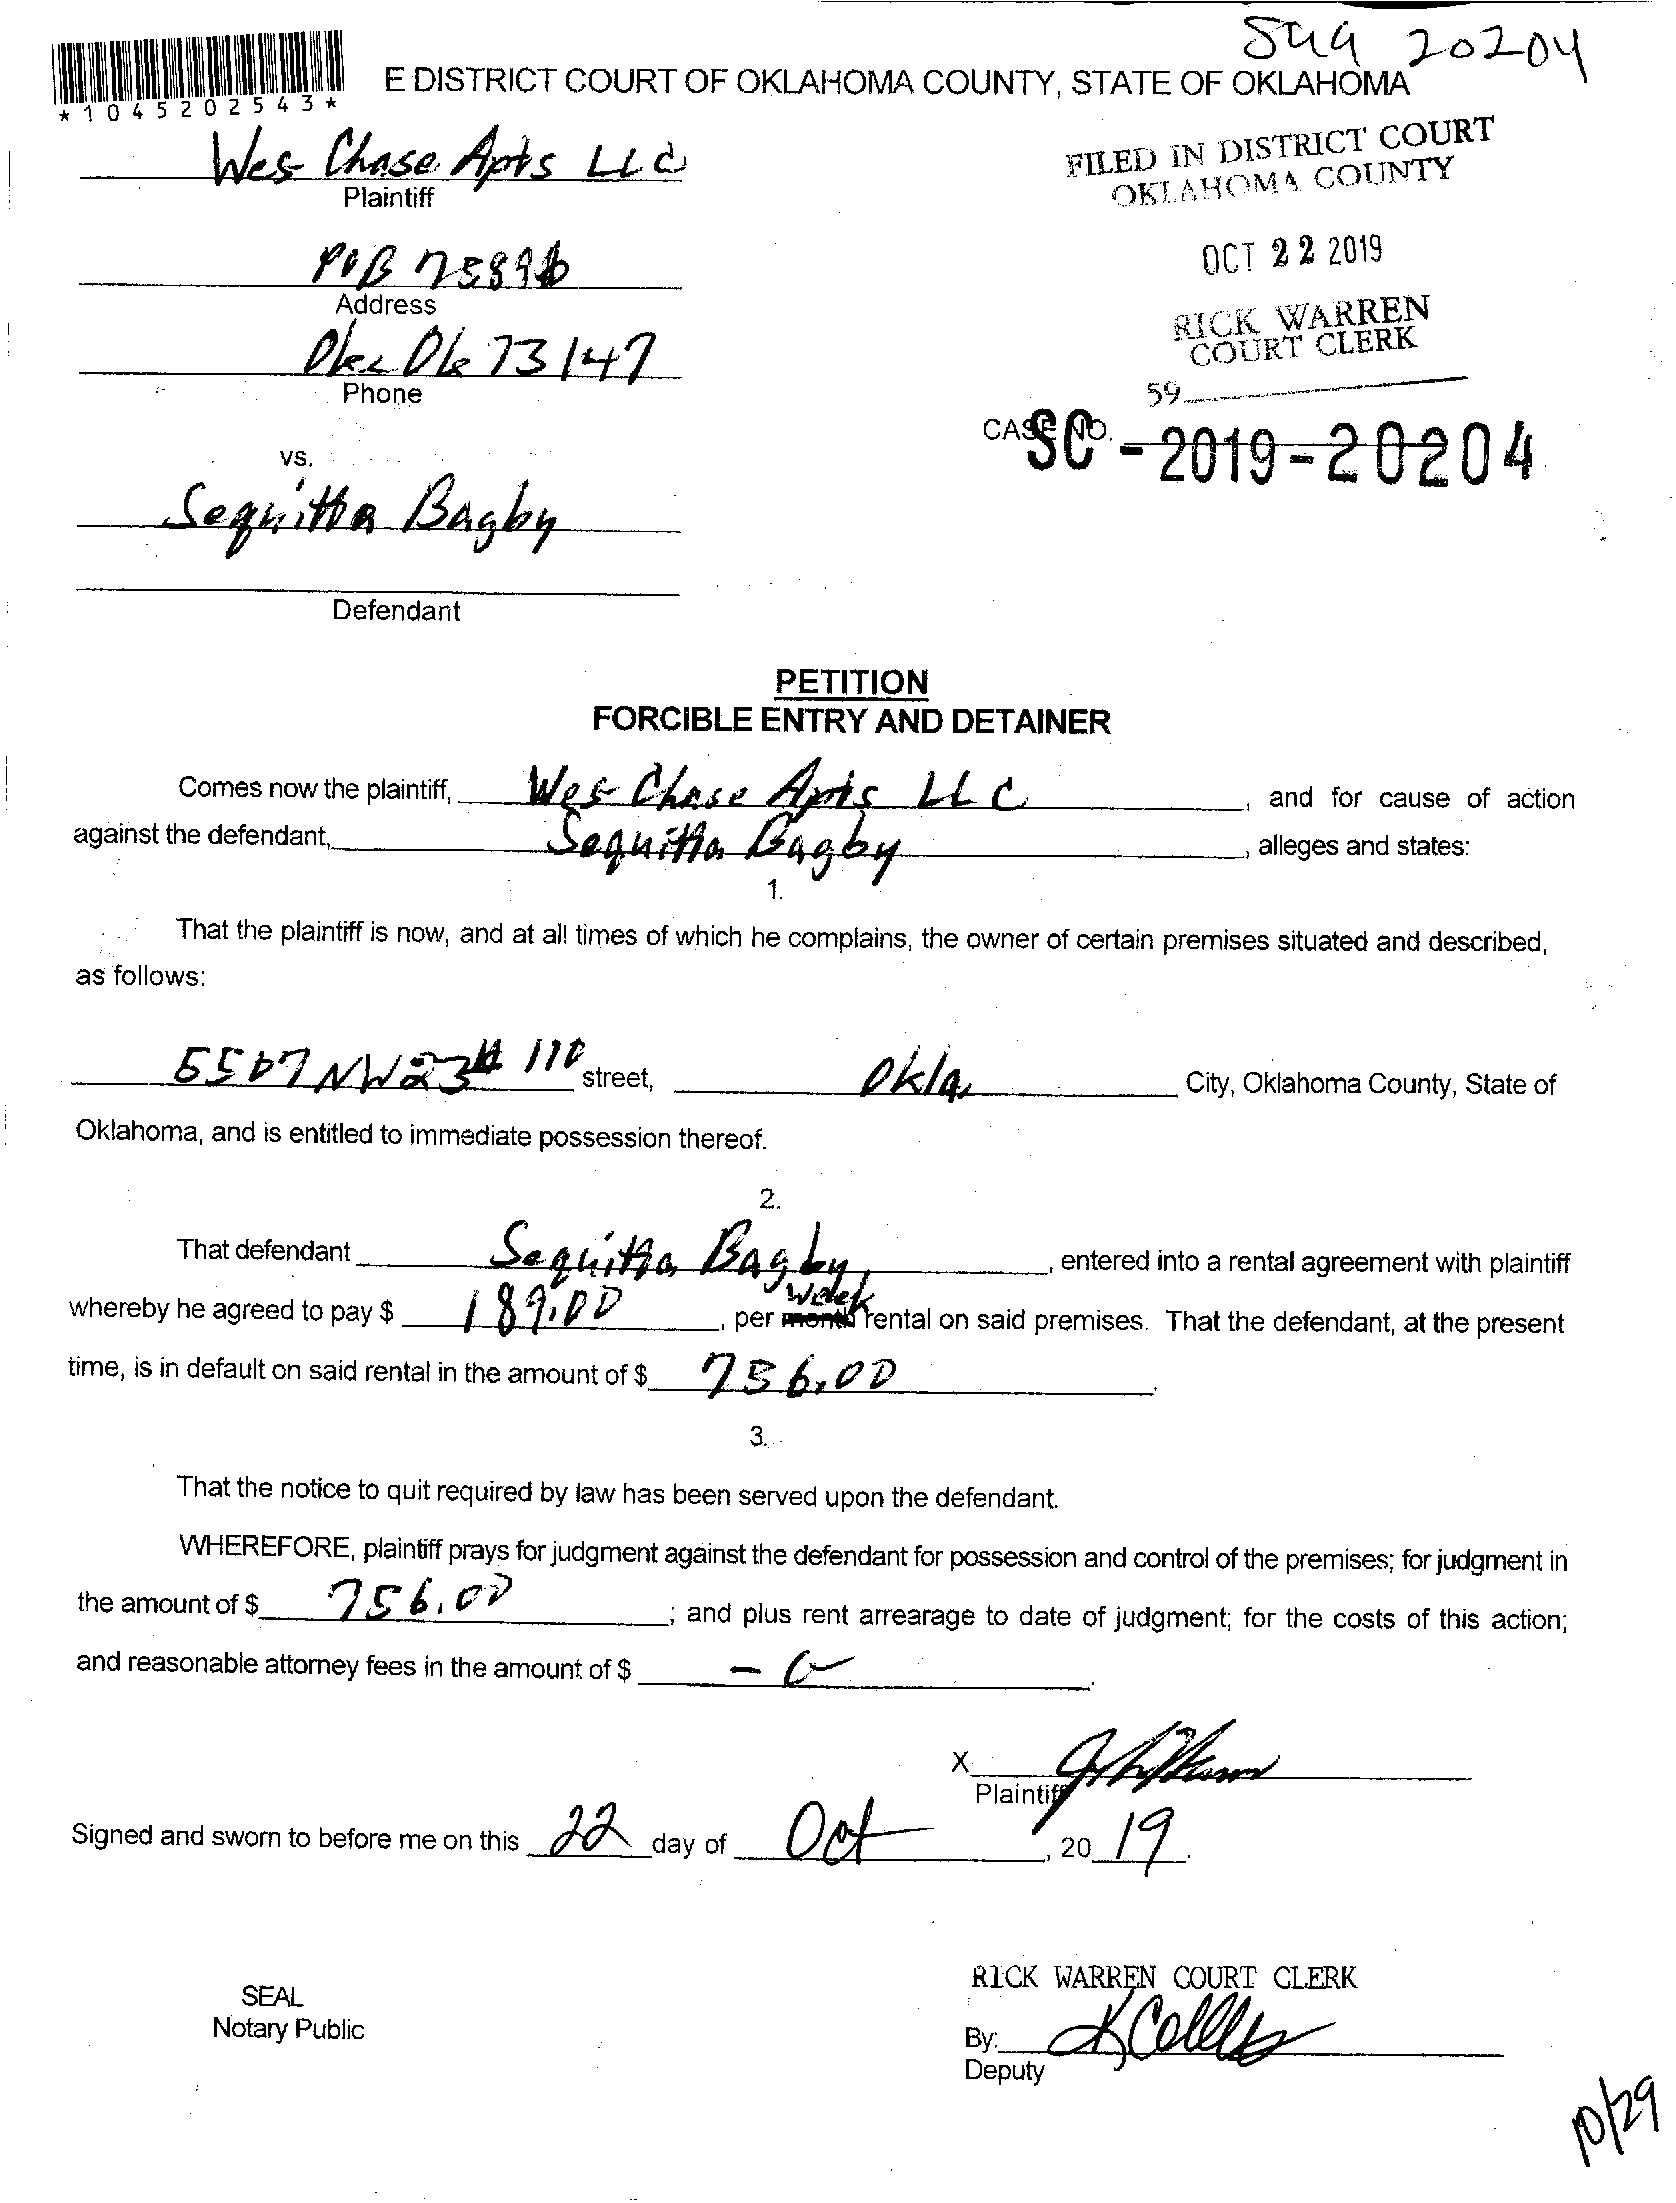 S49 20204
*1045202543*
E DISTRICT COURT OF OKLAHOMA COUNTY, STATE OF OKLAHOMA
Wes Chase Apts LLC
Plaintiff
FILED IN DISTRICT COURT
OKLAHOMA COUNTY
OCT 22 2019
RICK WARREN
COURT CLERK
59
POB 75896
Address
Okc Ok 73147
Phone
CASE NO.
SC - 2019 - 20204
vs.
Sequitta Bagby
Defendant
PETITION
FORCIBLE ENTRY AND DETAINER
Comes now the plaintiff, Wes Chase Apts LLC, and for cause of action
against the defendant, Sequitta Bagby, alleges and states:
1.
That the plaintiff is now, and at all times of which he complains, the owner of certain premises situated and described,
as follows:
5507 NW 23 # 110 street, Okla, City, Oklahoma County, State of
Oklahoma, and is entitled to immediate possession thereof.
2.
That defendant Sequitta Bagby, entered into a rental agreement with plaintiff
whereby he agreed to pay $ 189.00, per month week rental on said premises. That the defendant, at the present
time, is in default on said rental in the amount of $ 756.00.
3.
That the notice to quit required by law has been served upon the defendant.
WHEREFORE, plaintiff prays for judgment against the defendant for possession and control of the premises; for judgment in
the amount of $ 756.00; and plus rent arrearage to date of judgment; for the costs of this action;
and reasonable attorney fees in the amount of $ - 0.
X
Plaintiff
Signed and sworn to before me on this 22 day of Oct, 20 19.
SEAL
Notary Public
RICK WARREN COURT CLERK
By:
Deputy
10/29